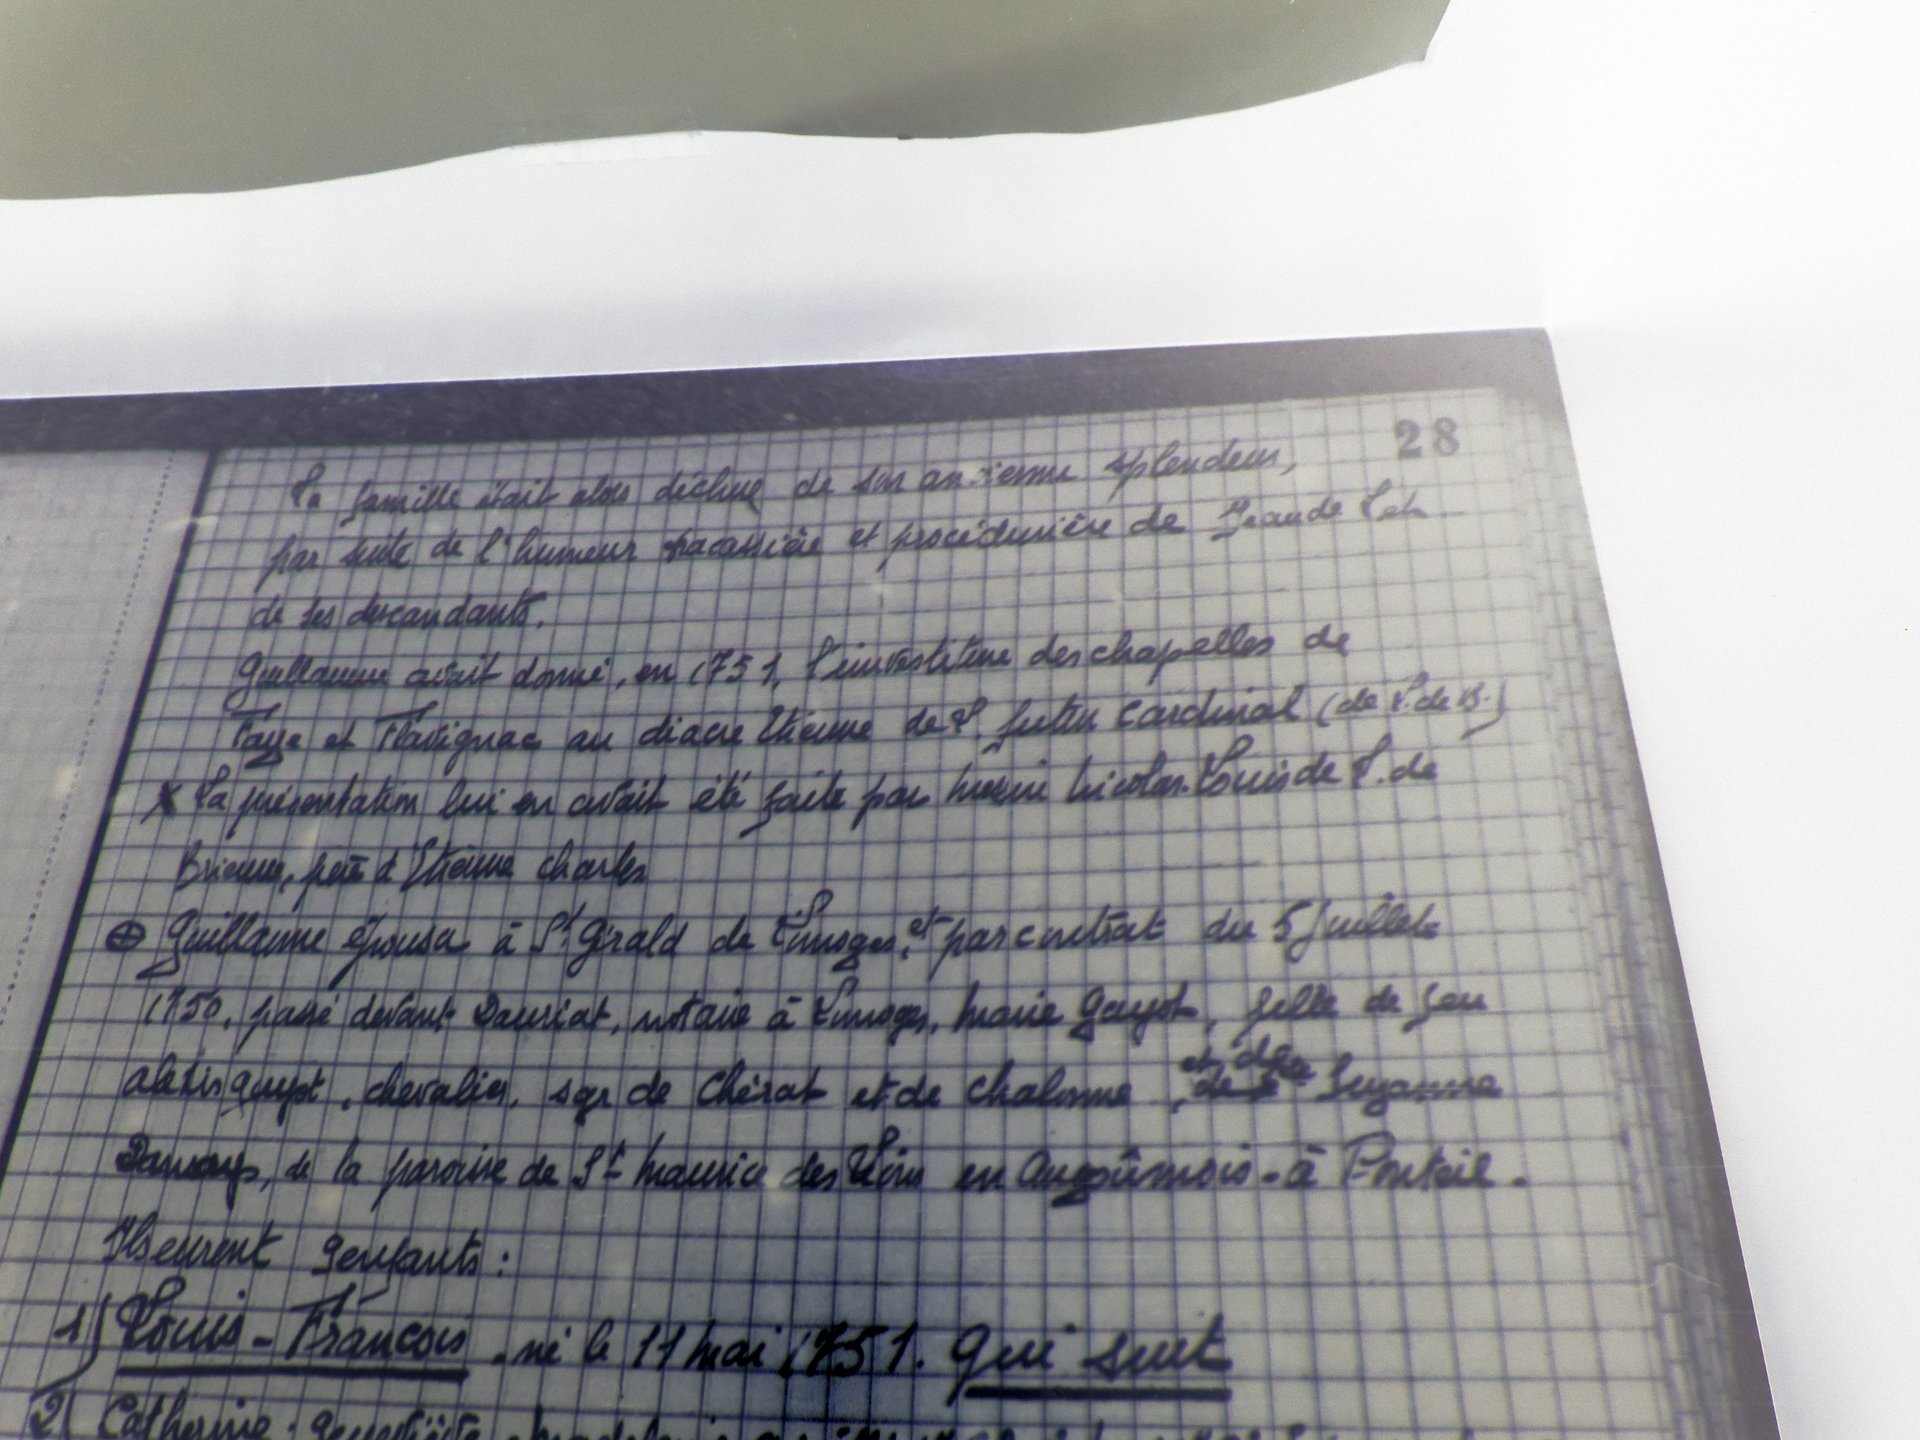 28
La famille était alors déchue de son ancienne splendeur,
par suite de l'humeur tracassière et procédurière de Jean de L. et
de ses descendants.
Guillaume avait donné, en 1751, l'investiture des chapelles de
Faye et Flavignac au diacre Etienne de L. futur Cardinal (de L. de B.)
X La présentation lui en avait été faite par Nicolas-Louis de L. de
Brienne, père d'Etienne Charles
⊕ Guillaume épousa à St Gérald de Limoges, et par contrat du 5 Juillet
1750, passé devant Dauriat, notaire à Limoges, Marie Guyot, fille de feu
Alexis Guyot, chevalier, sgr de Chérat et de Chalonne, et de Suzanne
de la paroisse de St Maurice des Lions en Angoumois - à
Ils eurent 9 enfants :
1) Louis-François, né le 11 Mai 1751. Qui suit
2) Catherine